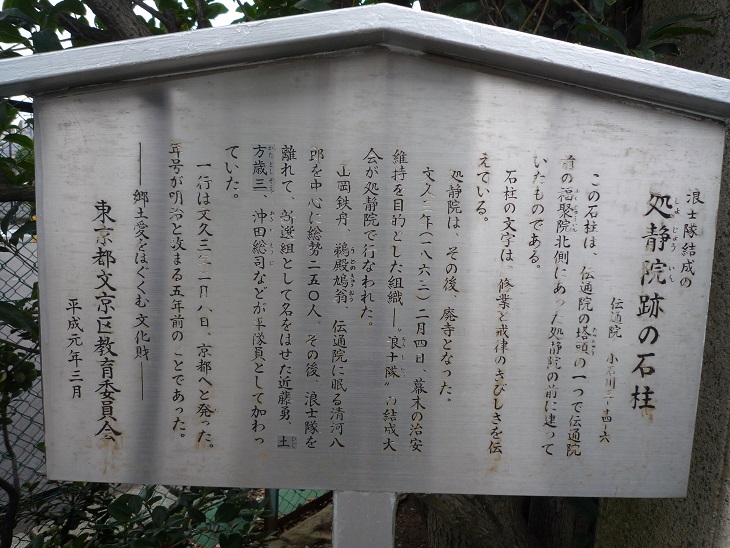 浪士隊結成の
処静院跡の石柱
しょじょういん
伝通院 小石川三-14-6
この石柱は、伝通院の塔頭の一つで伝通院
たっちゅう
前の福聚院北側にあった処静院の前に建って
いたものである。
石柱の文字は、修業と戒律のきびしさを伝
えている。
処静院は、その後、廃寺となった。
文久三年(一八六三)二月四日、幕末の治安
維持を目的とした組織―〝浪士隊〟の結成大
会が処静院で行なわれた。
山岡鉄舟、鵜殿鳩翁、伝通院に眠る清河八
郎を中心に総勢二五〇人、その後、浪士隊を
離れて、新選組として名をはせた近藤勇、土
方歳三、沖田総司などが平隊員として加わっ
ていた。
一行は文久三年二月八日、京都へと発った。
年号が明治と改まる五年前のことであった。
―郷土愛をはぐくむ文化財―
東京都文京区教育委員会
平成元年三月